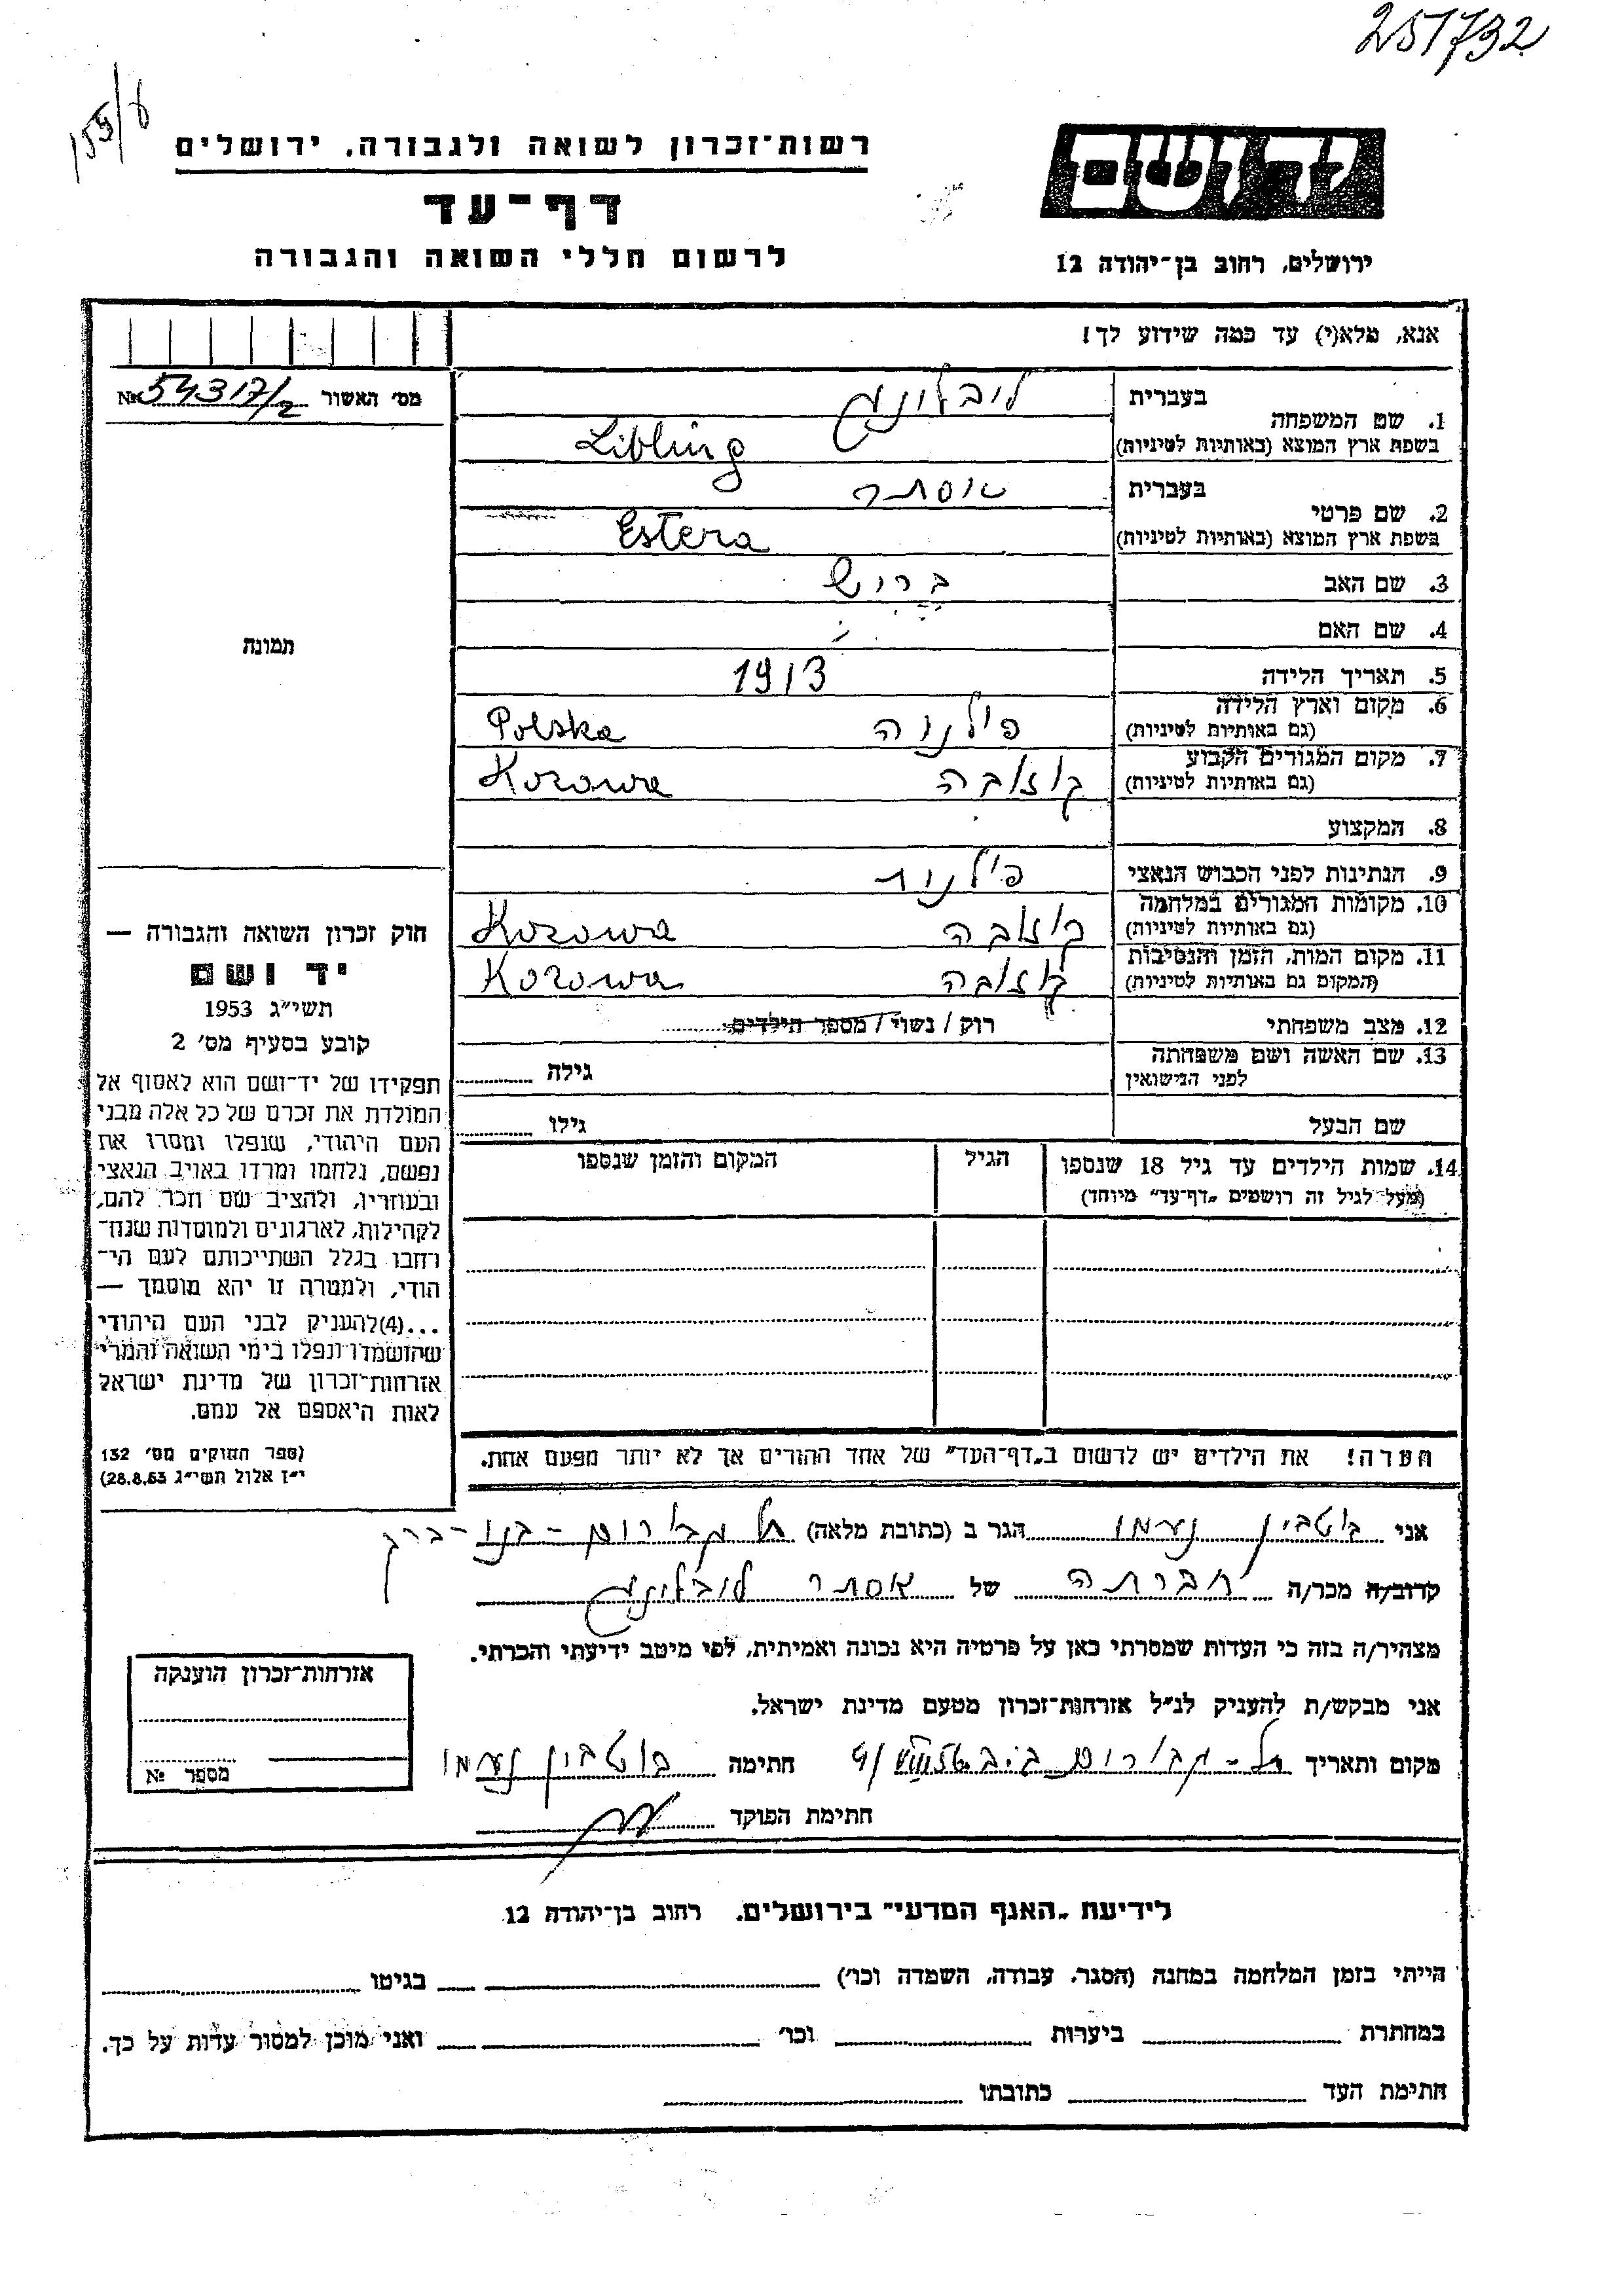 251732
155/8
רשות־זכרון לשואה ולגבורה, ירושלים
דף־עד
לרשום חללי השואה והגבורה
ידושם
ירושלים, רחוב בן־יהודה 12
אנא, מלא(י) עד כמה שידוע לך!
מס׳ האשור № 54317/2
1. שם המשפחה
בעברית ליבלינג
בשפת ארץ המוצא (באותיות לטיניות) Libling
2. שם פרטי
בעברית אסתר
בשפת ארץ המוצא (באותיות לטיניות) Estera
3. שם האב בריש
4. שם האם
5. תאריך הלידה 1913
6. מקום וארץ הלידה
(גם באותיות לטיניות) פילניה Polska
7. מקום המגורים הקבוע
(גם באותיות לטיניות) קוזובה Kozowa
8. המקצוע
9. הנתינות לפני הכבוש הנאצי פילנית
10. מקומות המגורים במלחמה
(גם באותיות לטיניות) קוזובה Kozowa
11. מקום המות, הזמן והנסיבות
(המקום גם באותיות לטיניות) קוזובה Kozowa
12. מצב משפחתי רוק / נשוי / מספר הילדים
13. שם האשה ושם משפחתה
לפני הנישואין גילה
שם הבעל גילו
14. שמות הילדים עד גיל 18 שנספו הגיל המקום והזמן שנספו
(מעל לגיל זה רושמים „דף־עד” מיוחד)
תמונה
חוק זכרון השואה והגבורה —
יד ושם
תשי״ג 1953
קובע בסעיף מס׳ 2
תפקידו של יד־ושם הוא לאסוף אל
המולדת את זכרם של כל אלה מבני
העם היהודי, שנפלו ומסרו את
נפשם, נלחמו ומרדו באויב הנאצי
ובעוזריו, ולהציב שם וזכר להם,
לקהילות, לארגונים ולמוסדות שנח־
רבו בגלל השתייכותם לעם הי־
הודי, ולמטרה זו יהא מוסמך —
...(4) להעניק לבני העם היהודי
שהושמדו ונפלו בימי השואה והמרי
אזרחות־זכרון של מדינת ישראל
לאות היאספם אל עמם.
(ספר החוקים מס׳ 132
י״ז אלול תשי״ג 28.8.53)
הערה! את הילדים יש לרשום ב„דף־העד” של אחד ההורים אך לא יותר מפעם אחת.
אני נעמי הגר ב (כתובת מלאה) תל גבורים - בני-ברק
קרוב/ה מכר/ה חברתה של אסתר ליבלינג
מצהיר/ה בזה כי העדות שמסרתי כאן על פרטיה היא נכונה ואמיתית, לפי מיטב ידיעתי והכרתי.
אני מבקש/ת להעניק לנ״ל אזרחות־זכרון מטעם מדינת ישראל.
מקום ותאריך תל-גבורים חתימה נעמי
חתימת הפוקד
אזרחות־זכרון הוענקה
מספר №
לידיעת „האגף המדעי” בירושלים, רחוב בן־יהודה 12
הייתי בזמן המלחמה במחנה (הסגר, עבודה, השמדה וכו׳) בגיטו
במחתרת ביערות וכו׳ ואני מוכן למסור עדות על כך.
חתימת העד כתובתו